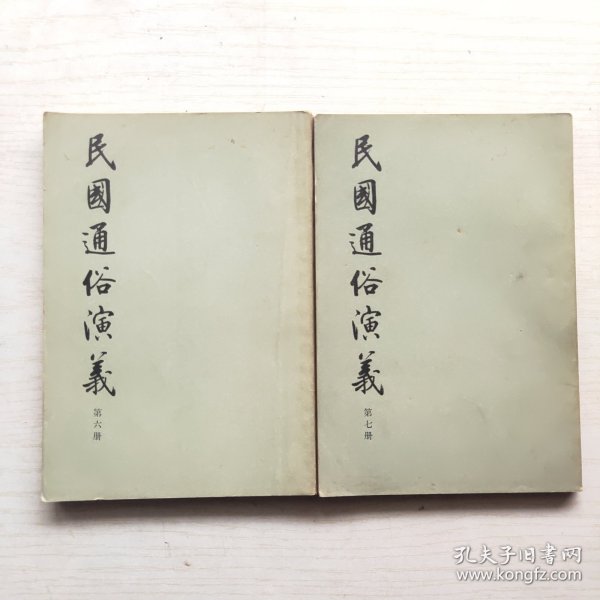 民國通俗演義
第六册
民國通俗演義
第七册
孔夫子旧书网
www.kongfz.com